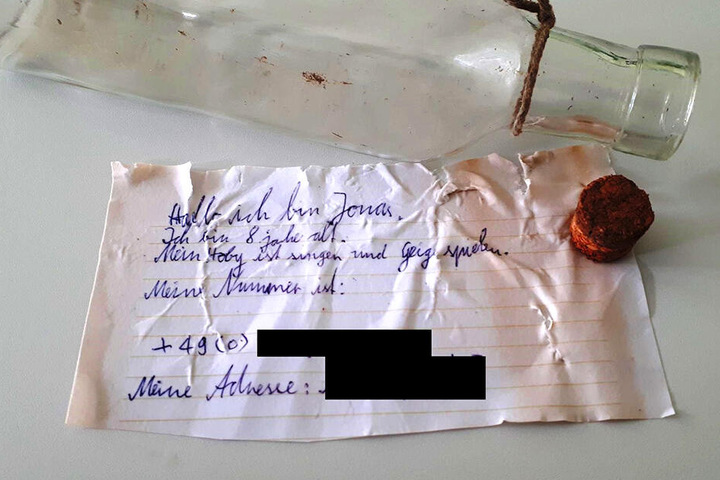 Hallo ich bin Jonas.
Ich bin 8 jahe alt.
Mein Hoby ist singen und Geig spielen.
Meine Nummer ist:
+49(0)
Meine Adresse: